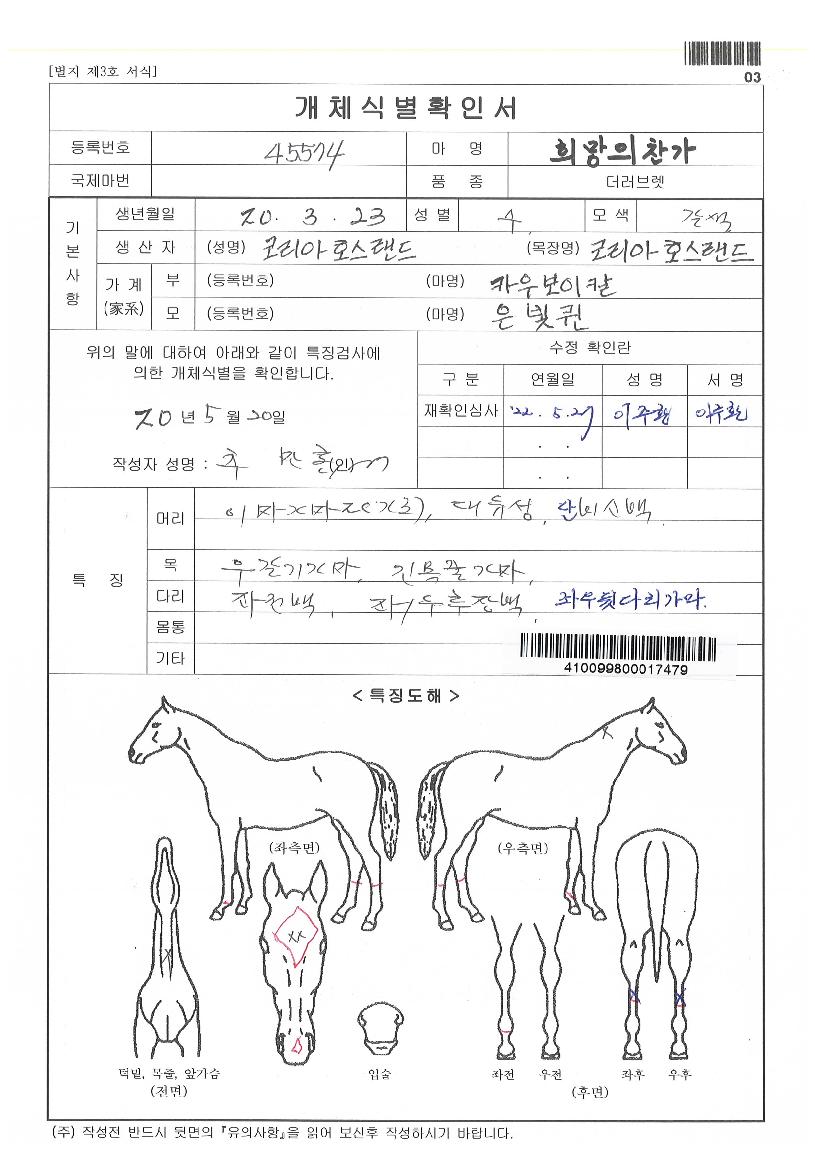 03
[별지 제3호 서식]
개체식별확인서
등록번호 45574 마 명 희망의찬가
국제마번 품 종 더러브렛
기본사항
생년월일 20. 3. 23 성별 수 모색 갈색
생산자 (성명) 코리아호스랜드 (목장명) 코리아호스랜드
가계(家系) 부 (등록번호) (마명) 카우보이칼
모 (등록번호) (마명) 은빛퀸
위의 말에 대하여 아래와 같이 특징검사에
의한 개체식별을 확인합니다.
20 년 5 월 20일
작성자 성명 : (인)
수정 확인란
구분 연월일 성명 서명
재확인심사 '22. 5. 27 이주환 이주환
. .
. .
특 징
머리 이마가마2(가로), 대유성, 단비소백
목 우갈기가마, 인목줄가마,
다리 좌전백, 좌/우후장백, 좌우뒷다리가마.
몸통
기타
410099800017479
< 특징도해 >
(좌측면) (우측면)
XX
턱밑, 목줄, 앞가슴
(전면)
입술
좌전 우전 좌후 우후
(후면)
(주) 작성전 반드시 뒷면의 『유의사항』을 읽어 보신후 작성하시기 바랍니다.